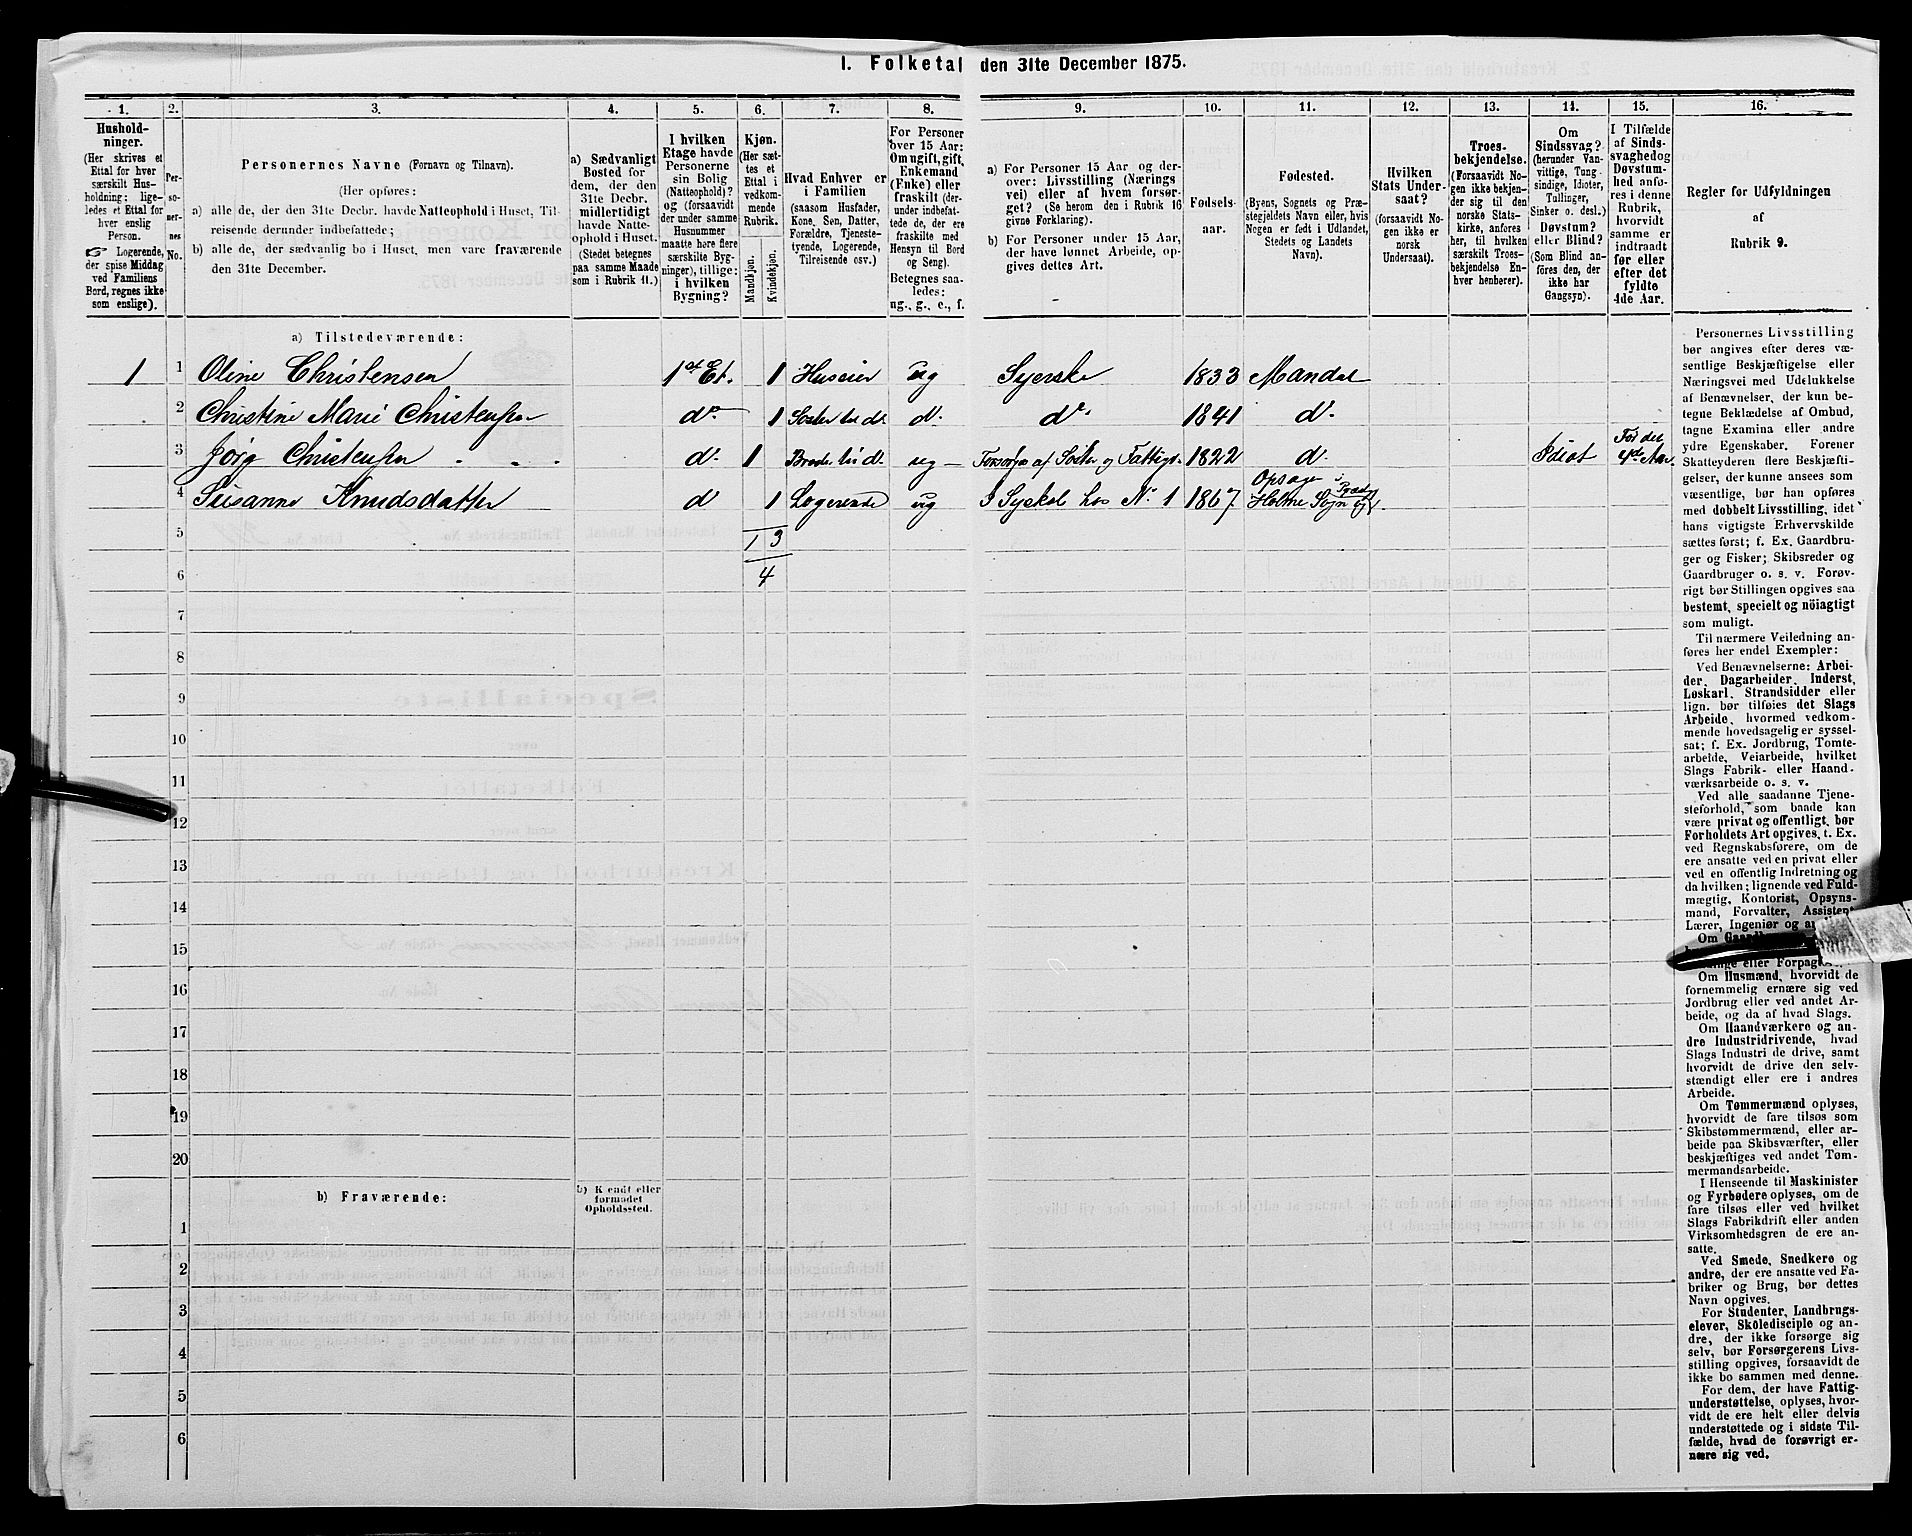 I. Folketal den 31te December 1875.
1. 2. 3. 4. 5. 6. 7. 8. 9. 10. 11. 12. 13. 14. 15. 16.
Hushold-
ninger.
(Her skrives et
Ettal for hver
særskilt Hus-
holdning; lige-
ledes et Ettal for
hver enslig
Person.
☞ Logerende,
der spise Middag
ved Familiens
Bord, regnes ikke
som enslige).
Per-
so-
ner-
nes
No.
Personernes Navne (Fornavn og Tilnavn).
(Her opføres:
a) alle de, der den 31te Decbr. havde Natteophold i Huset, Til-
reisende derunder indbefattede;
b) alle de, der sædvanlig bo i Huset, men vare fraværende
den 31te December.
a) Sædvanligt
Bosted for
dem, der den
31te Decbr.
midlertidigt
havde Natte-
ophold i Huset.
(Stedet betegnes
paa samme Maade
som i Rubrik 11.)
I hvilken
Etage havde
Personerne
sin Bolig
(Natteophold)?
og (forsaavidt
der under samme
Husnummer
maatte høre flere
særskilte Byg-
ninger), tillige:
i hvilken
Bygning?
Kjøn.
(Her sæt-
tes et
Ettal i
vedkom-
mende
Rubrik.
Mandkjøn.
Kvindekjøn.
Hvad Enhver er
i Familien
(saasom Husfader,
Kone, Søn, Datter,
Forældre, Tjeneste-
tyende, Logerende,
Tilreisende osv.)
For Personer
over 15 Aar:
Om ugift, gift,
Enkemand
(Enke) eller
fraskilt (der-
under indbefat-
tede de, der ere
fraskilte med
Hensyn til Bord
og Seng).
Betegnes saa-
ledes:
ug., g., e., f.
a) For Personer 15 Aar og der-
over: Livsstilling (Nærings
vei) eller af hvem forsør-
get? (Se herom den i Rubrik 16
givne Forklaring).
b) For Personer under 15 Aar,
der have lønnet Arbeide, op-
gives dettes Art.
Fødsels-
aar.
Fødested.
(Byens, Sognets og Præ-
stegjeldets Navn eller, hvis
Nogen er født i Udlandet,
Stedets og Landets
Navn).
Hvilken
Stats Under-
saat?
(forsaavidt No-
gen ikke er
norsk
Undersaat).
Troes-
bekjendelse.
(Forsaavidt No-
gen ikke bekjen-
der sig til den
norske Stats-
kirke, anføres
her, til hvilken
særskilt Troes-
bekjendelse En-
hver henhører).
Om
Sindssvag?
(herunder Van-
vittige, Tung-
sindige, Idioter,
Tullinger,
Sinker o. desl.)
Døvstum?
eller Blind?
(Som Blind an-
føres den, der
ikke har
Gangsyn).
I Tilfælde
af Sinds-
svaghed og
Døvstum-
hed anfø-
res i denne
Rubrik,
hvorvidt
samme er
indtraadt
før eller
efter det
fyldte
4de Aar.
Regler for Udfyldningen
af
Rubrik 9.
a) Tilstedeværende:
1 1 Oline Christensen 1st Et. 1 Huseier ug Syerske 1833 Mandal
2 Christine Marie Christensen do 1 Søster til do do. do. 1841 do.
3 Jørg Christensen do. 1 Broder til do. ug Forsørges af Søster og Fattigv. 1822 do. Idiot Før det 4de Aar.
4 Susanne Knudsdatter do 1 Logerende ug I Syskol hos No. 1 1867 Holme Sogn
5 1 3
6 4
7
8
9
10
11
12
13
14
15
16
17
18
19
20
b) Fraværende:
b) Kjendt eller
formodet
Opholdssted.
1
2
3
4
5
6
Personernes Livsstilling
bør angives efter deres væ-
sentlige Beskjæftigelse eller
Næringsvei med Udelukkelse
af Benævnelser, der kun be-
tegne Beklædelse af Ombud,
tagne Examina eller andre
ydre Egenskaber. Forener
Skatteyderen flere Beskjæfti-
gelser, der kunne ansees som
væsentlige, bør han opføres
med dobbelt Livsstilling, idet
hans vigtigste Erhvervskilde
sættes først; f. Ex. Gaardbru-
ger og Fisker; Skibsreder og
Gaardbruger o. s. v. Forøv-
rigt bør Stillingen opgives saa
bestemt, specielt og nöiagtigt
som muligt.
Til nærmere Veiledning an-
føres her endel Exempler:
Ved Benævnelserne: Arbei-
der, Dagarbeider, Inderst,
Løskarl, Strandsidder eller
lign. bør tilføies det Slags
Arbeide, hvormed vedkom-
mende hovedsagelig er syssel-
sat; f. Ex. Jordbrug, Tomte-
arbeide, Veiarbeide, hvilket
Slags Fabrik- eller Haand-
værksarbeide o. s. v.
Ved alle saadanne Tjene-
steforhold, som baade kan
være privat og offentligt, bør
Forholdets Art opgives, t. Ex.
ved Regnskabsførere, om de
ere ansatte ved en privat eller
ved en offentlig Indretning og
da hvilken; lignende ved Fuld-
mægtig, Kontorist, Opsyns-
mand, Forvalter, Assistent,
Lærer, Ingeniør og
Om
eller
Om Husmænd, hvorvidt de
fornemmelig ernære sig ved
Jordbrug eller ved andet Ar-
beide, og da af hvad Slags.
Om Haandværkere og an-
dre Industridrivende, hvad
Slags Industri de drive, samt
hvorvidt de drive den selv-
stændigt eller ere i andres
Arbeide.
Om Tømmermænd oplyses,
hvorvidt de fare tilsøs som
Skibstømmermænd, eller ar-
beide paa Skibsværfter, eller
beskjæftiges ved andet Tøm-
mermandsarbeide.
I Henseende til Maskinister
og Fyrbødere oplyses, om de
fare tilsøs eller ved hvilket
Slags Fabrikdrift eller anden
Virksomhedsgren de ere an-
satte.
Ved Smede, Snedkere og
andre, der ere ansatte ved Fa-
briker og Brug, bør dettes
Navn opgives.
For Studenter, Landbrugs-
elever, Skoledisciple og an-
dre, der ikke forsørge sig
selv, bør Forsørgerens Livs-
stilling opgives, forsaavidt de
ikke bo sammen med denne.
For dem, der have Fattig-
understøttelse, oplyses, hvor-
vidt de ere helt eller delvis
understøttede og i sidste Til-
fælde, hvad de forøvrigt er-
nære sig ved.